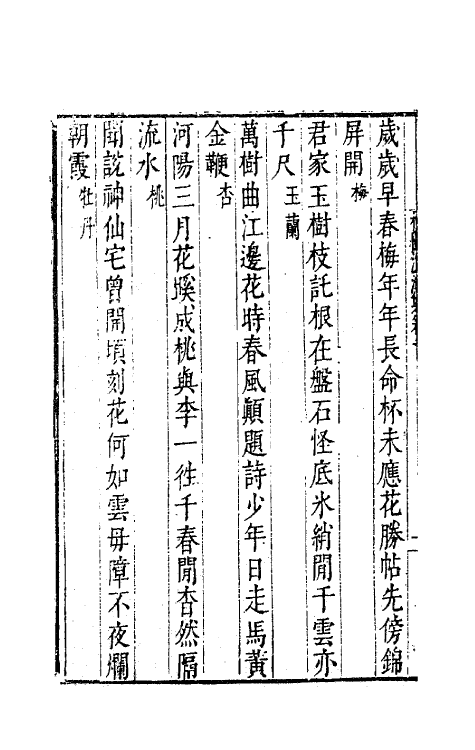 歲歲早春梅年年長命杯未應花勝帖先傍錦
屏開梅
君家玉樹枝託根在盤石怪底氷綃閒干雲亦
千尺玉蘭
萬樹曲江邊花時春風顛題詩少年日走馬黃
金鞭杏
河陽三月花蹊成桃與李一徃千春閒杳然隔
流水桃
聞說神仙宅曾開頃刻花何如雲毋障不夜爛
朝霞牡丹